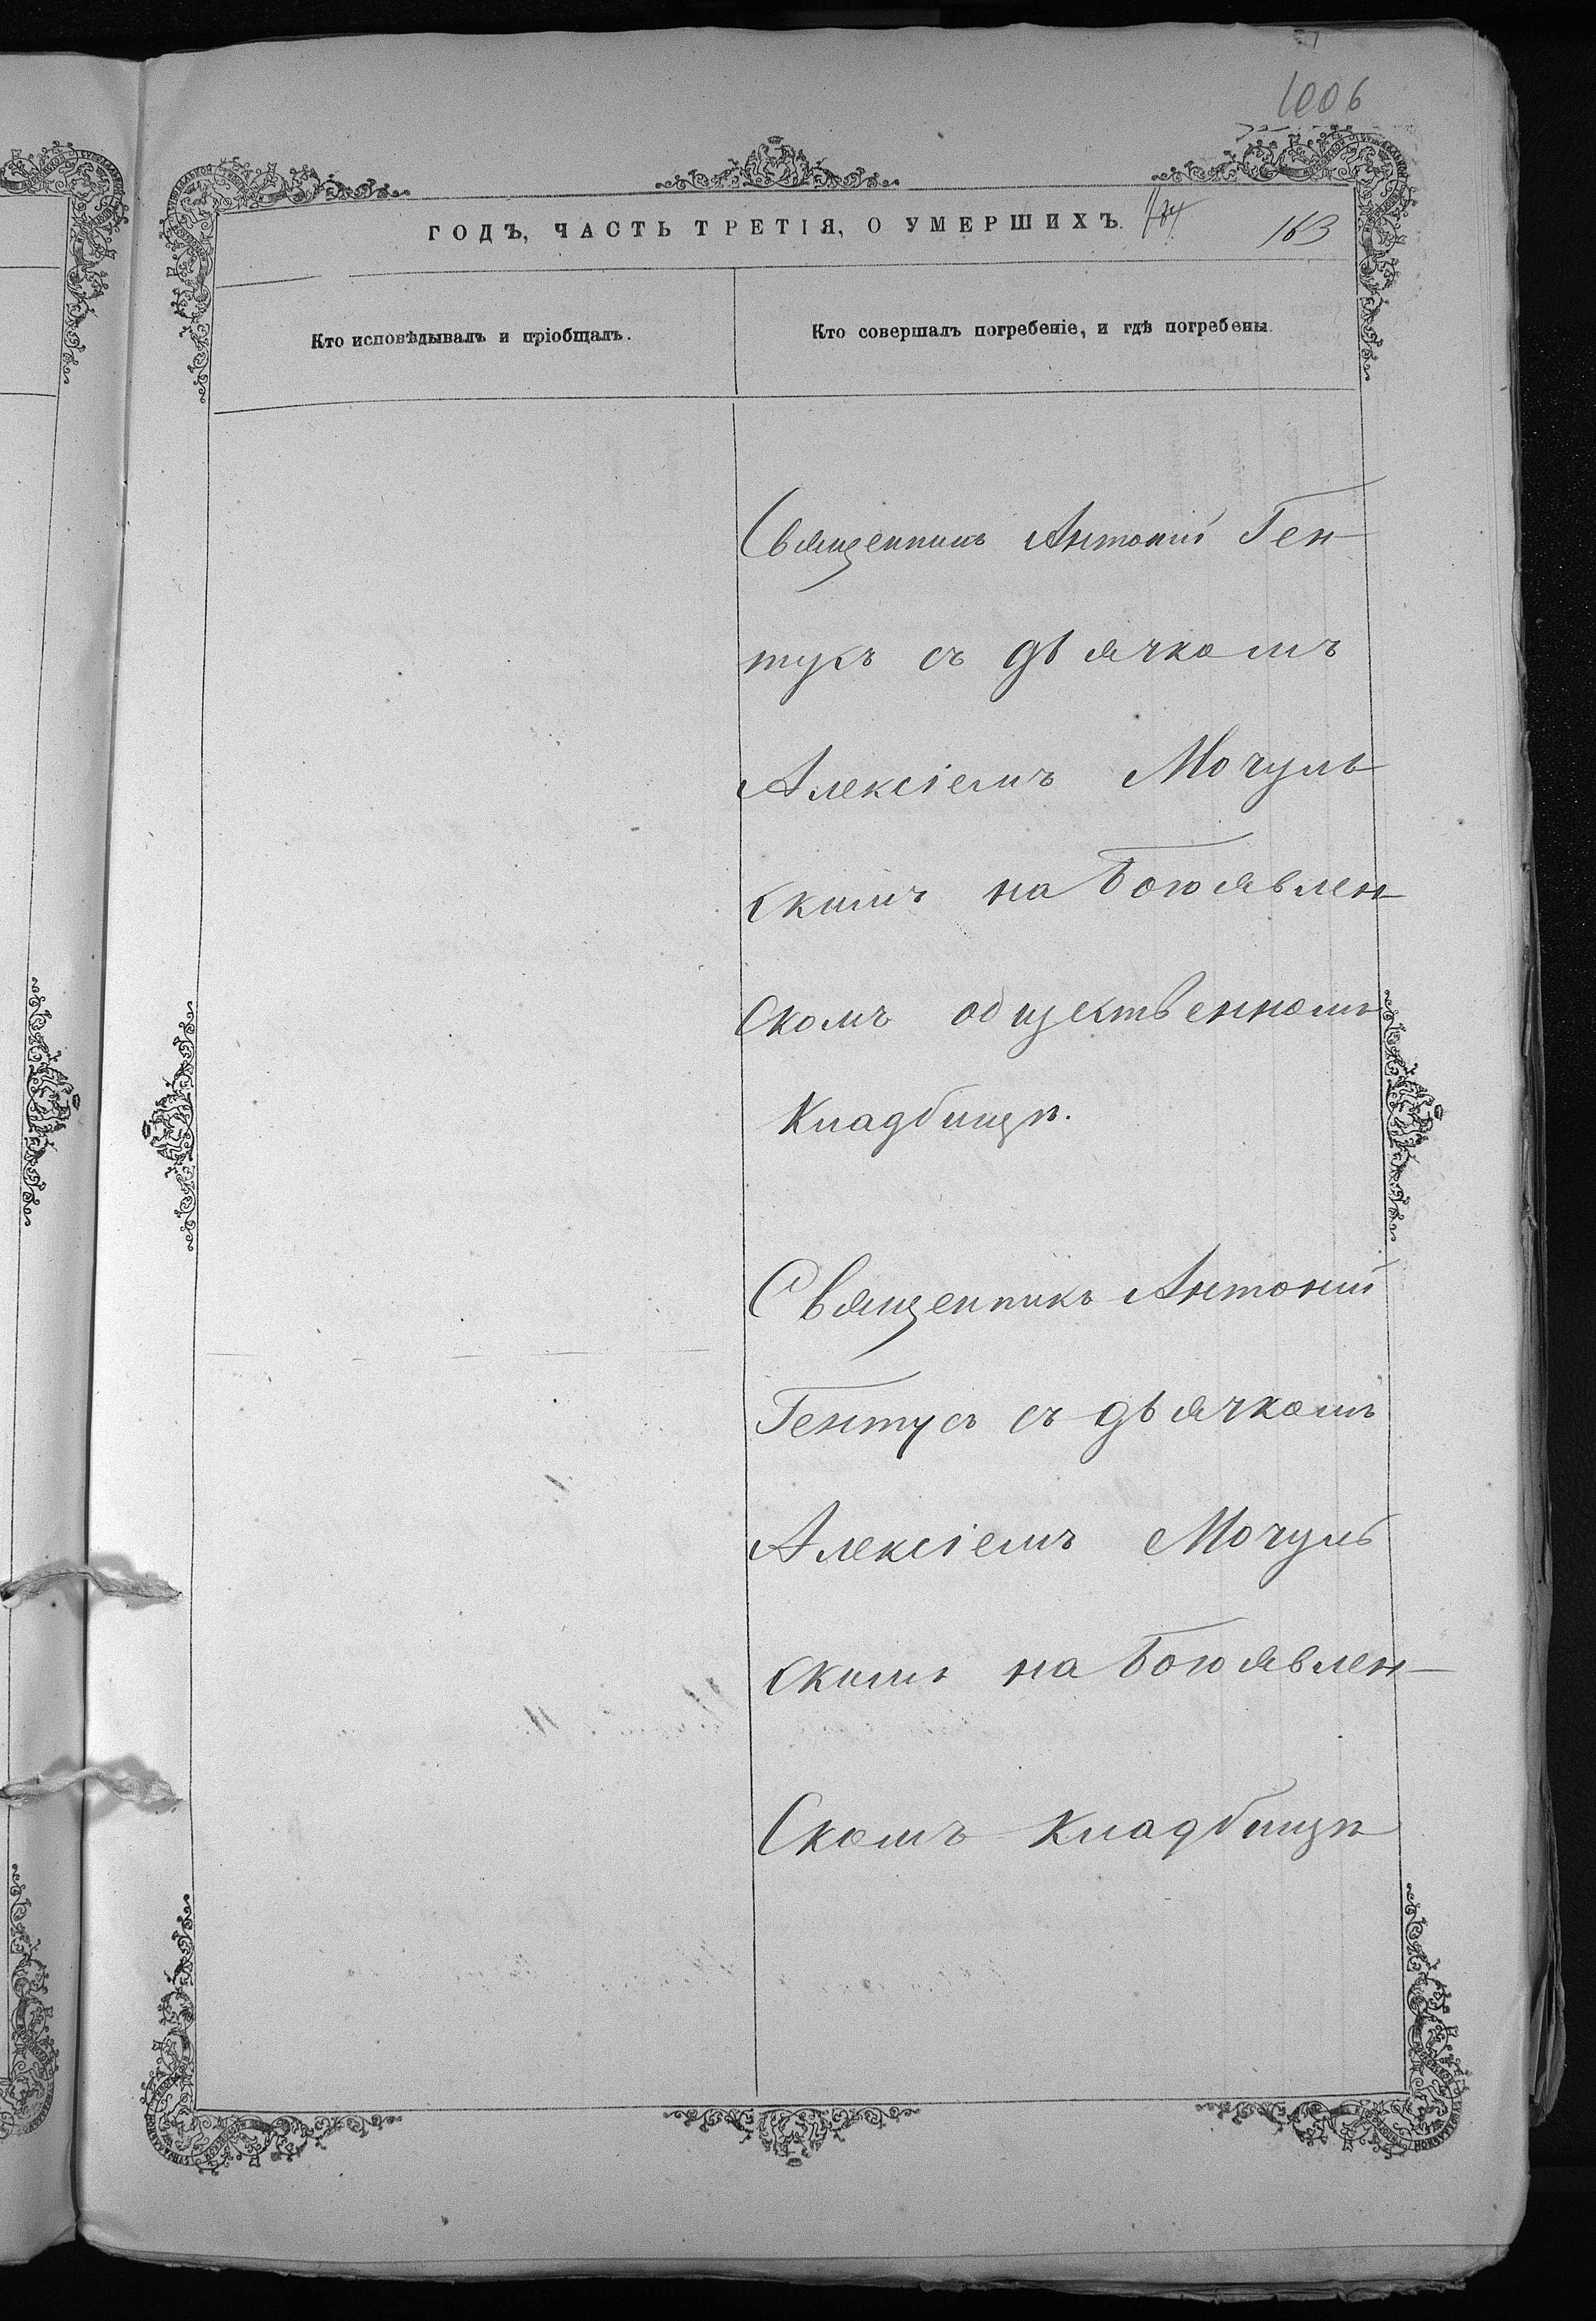 1006
ГОДЪ, ЧАСТЬ ТРЕТІЯ, О УМЕРШИХЪ. 163
Кто исповѣдывалъ и пріобщалъ.
Кто совершалъ погребеніе, и гдѣ погребены.
Священникъ Антоній Ген-
тукъ съ дьячкомъ
Алексіемъ Мочуль-
скимъ на Богоявлен-
скомъ общественномъ
Кладбищѣ.
Священникъ Антоній
Гентусъ съ дьячкомъ
Алексіемъ Мочуль
скимъ на Богоявлен-
Скомъ Кладбищѣ